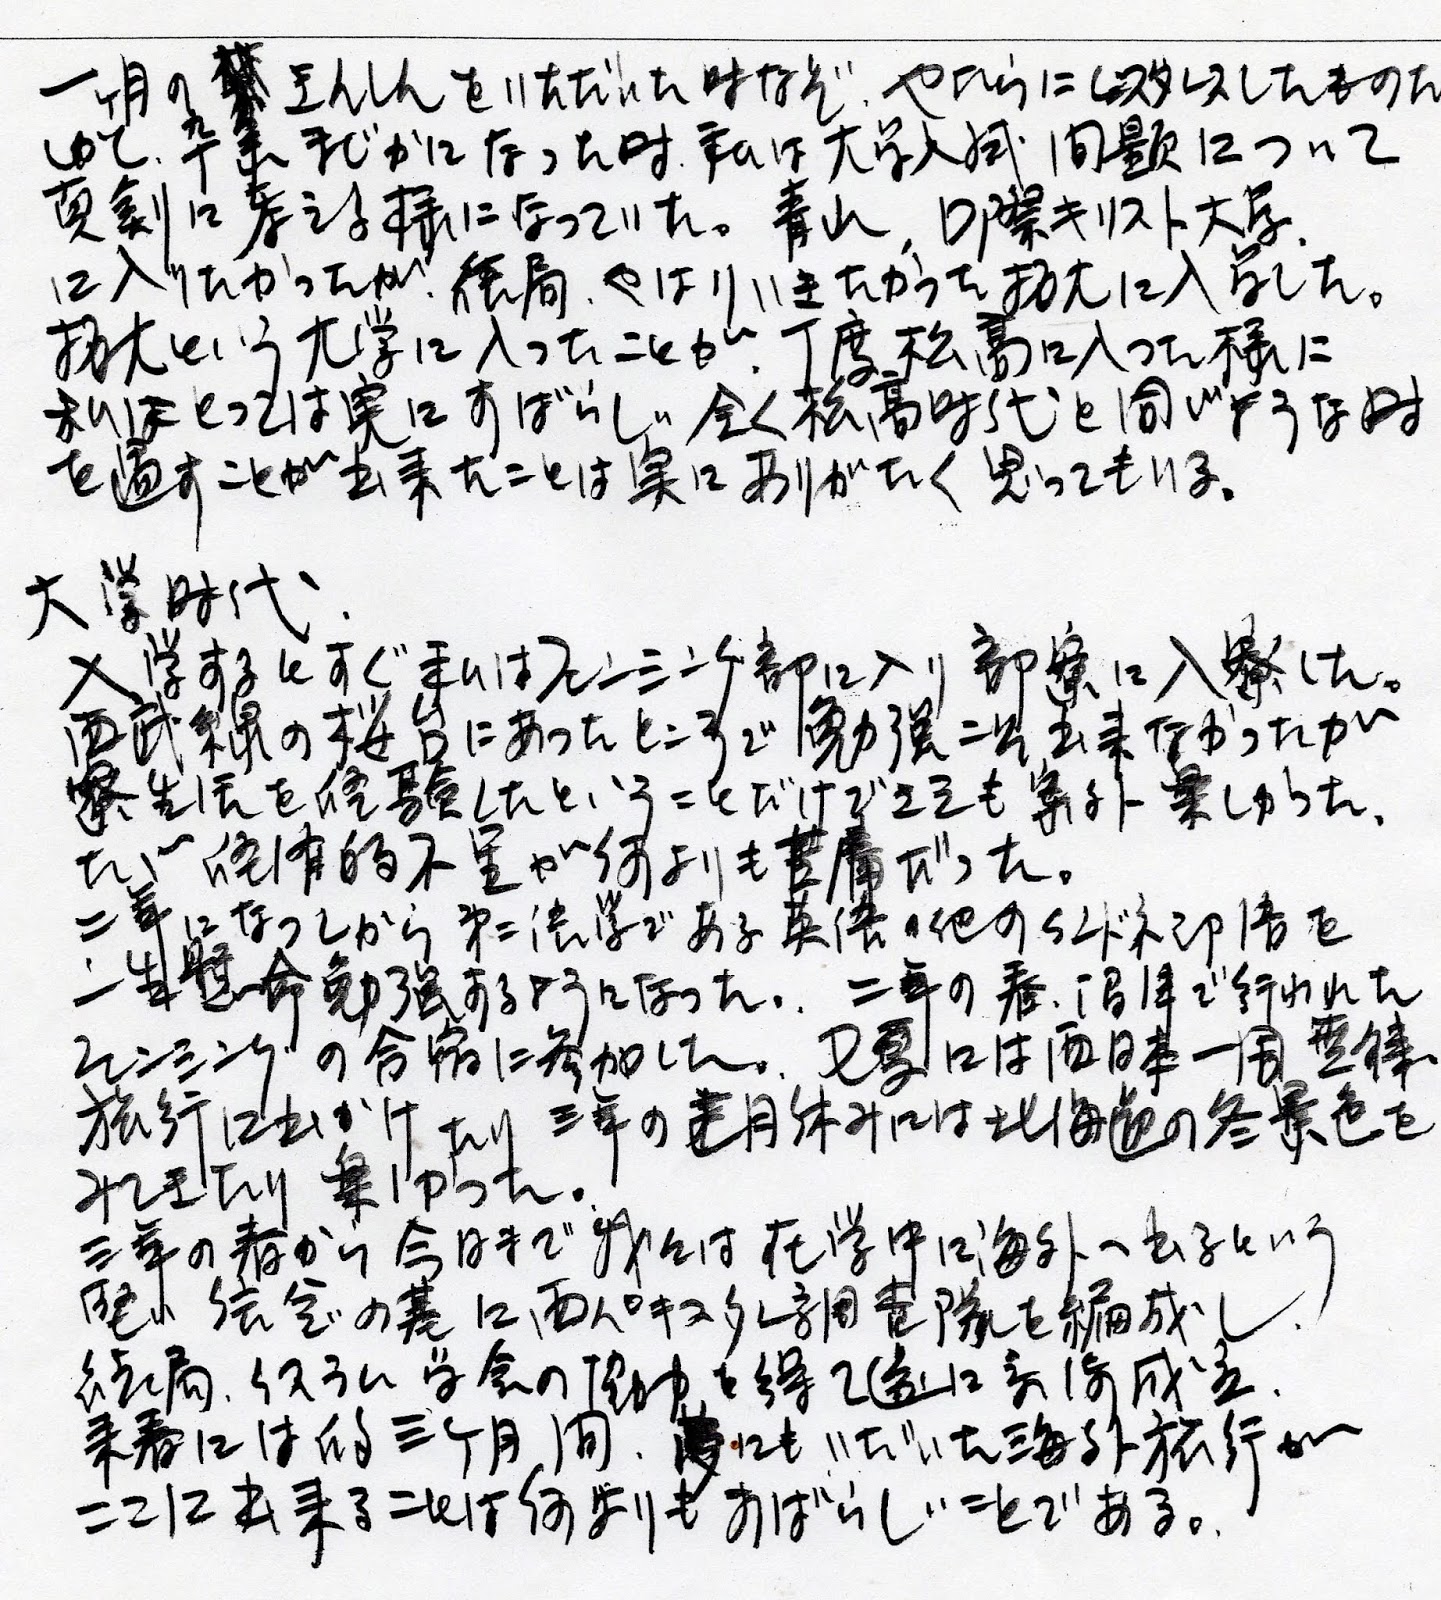 一ヶ月の きんしんをいただいた時など、やたらに したものだ
しかし、卒業まぢかになった時、私は大学入試問題について
真剣に考える様になっていた。青山、国際キリスト大学、
に入りたかったが、結局、やはりいきたかった拓大に入学した。
拓大という大学に入ったことが、丁度松高に入った様に
私にとっては実にすばらしい全く松高時代と同じような時
を過すことが出来たことは実にありがたく思ってもいる。
大学時代、
入学するとすぐ私はフェンシング部に入り部寮に入寮した。
西武線の桜台にあったところで勉強こそ出来なかったが
寮生活を体験したということだけでさえも案外楽しかった、
ただ体育的不足が何よりも苦痛だった。
二年になってから第二語学である英語、他のインドネシヤ語を
一生懸命勉強するようになった。二年の春、沼津で行われた
フェンシングの合宿に参加した。又夏には西日本一周
旅行に出かけたり三年の正月休みには北海道の冬景色を
みてきたり楽しかった。
三年の春から今日まで我々は在学中に海外へ出るという
堅い信念の基に西パキスタン調査隊を編成し、
結局、イスラム学会の協力を得て遂に 成立、
来春には約三ヶ月間、夢にもいだいた海外旅行が
ここに出来ることは何よりもすばらしいことである。